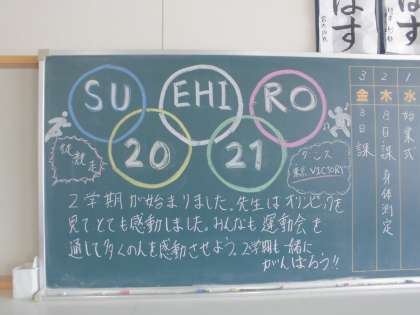 SU EHI RO
20 21
徒競走
ダンス
東京 VICTORY
2学期が始まりました。先生はオリンピックを
見てとても感動しました。みんなも運動会を
通して多くの人を感動させよう。2学期も一緒に
がんばろう!!
1 水 始業式
2 木 3日課 身体測定
3 金 3日課
はす
はす